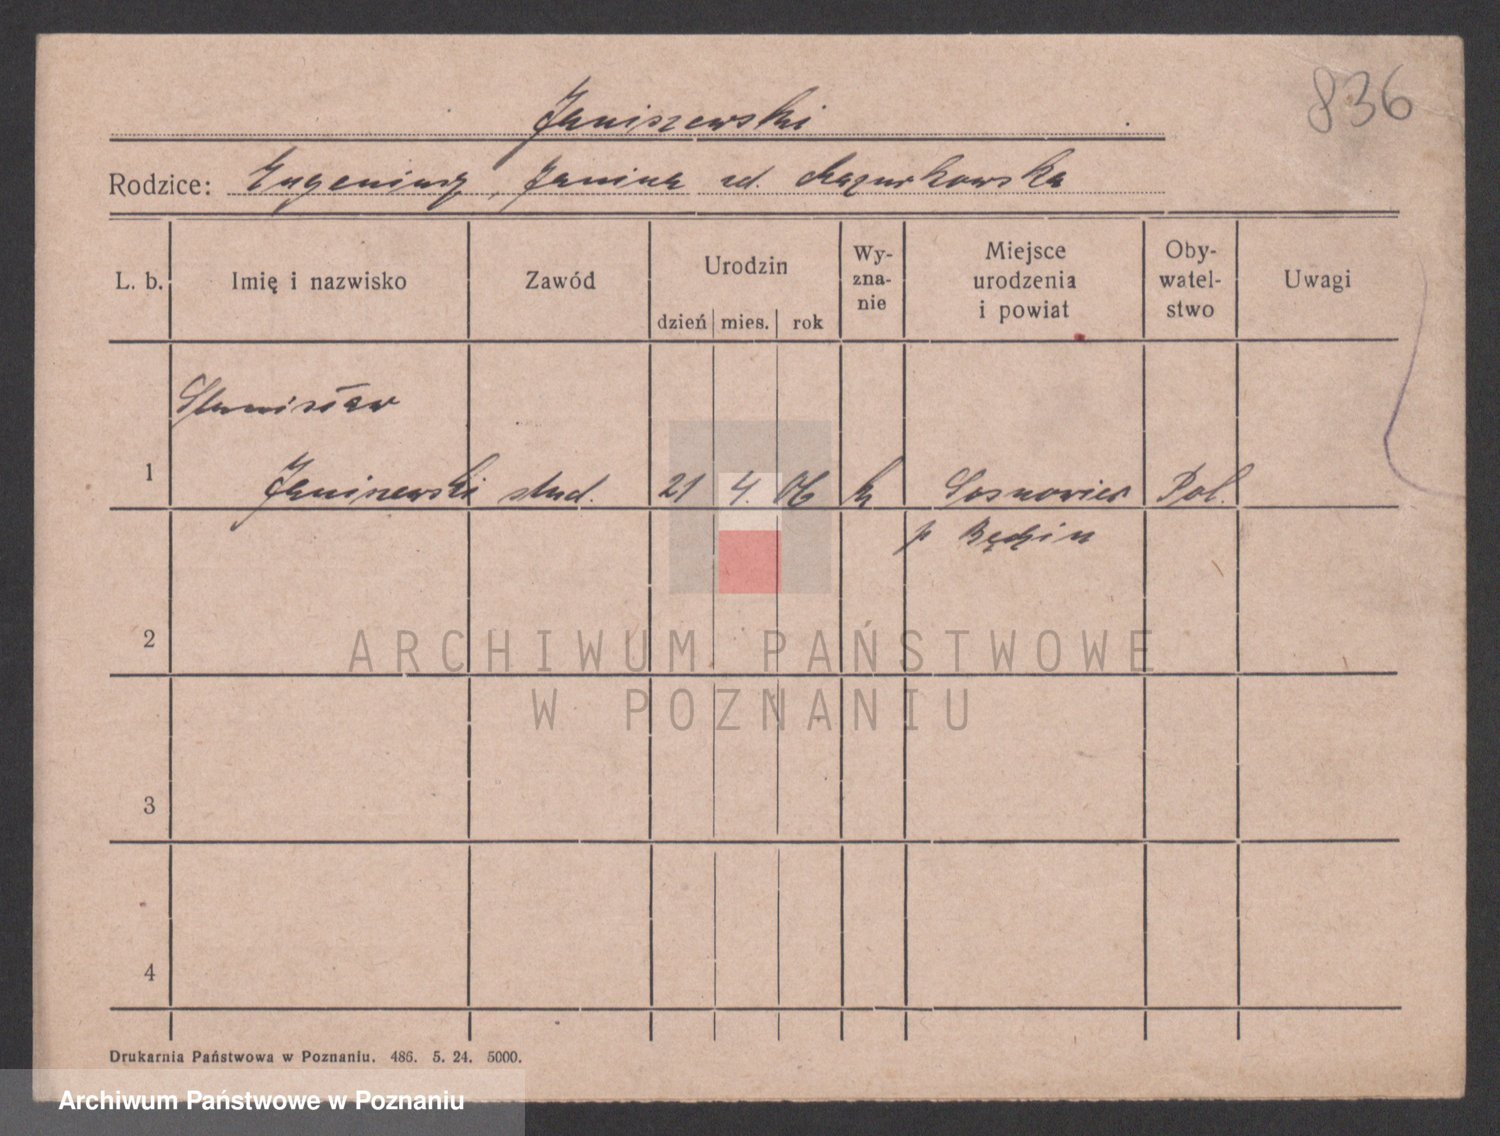 836
Janiszewski
Rodzice: Eugeniusz, Janina zd. Mazurkowska
L. b.
Imię i nazwisko
Zawód
Urodzin
dzień
mies.
rok
Wy-
zna-
nie
Miejsce
urodzenia
i powiat
Oby-
watel-
stwo
Uwagi
Stanisław
1 Janiszewski stud. 21 4. 06 k Sosnowiec Pol.
p Będzin
2
3
4
ARCHIWUM PAŃSTWOWE
W POZNANIU
Drukarnia Państwowa w Poznaniu. 486. 5. 24. 5000.
Archiwum Państwowe w Poznaniu